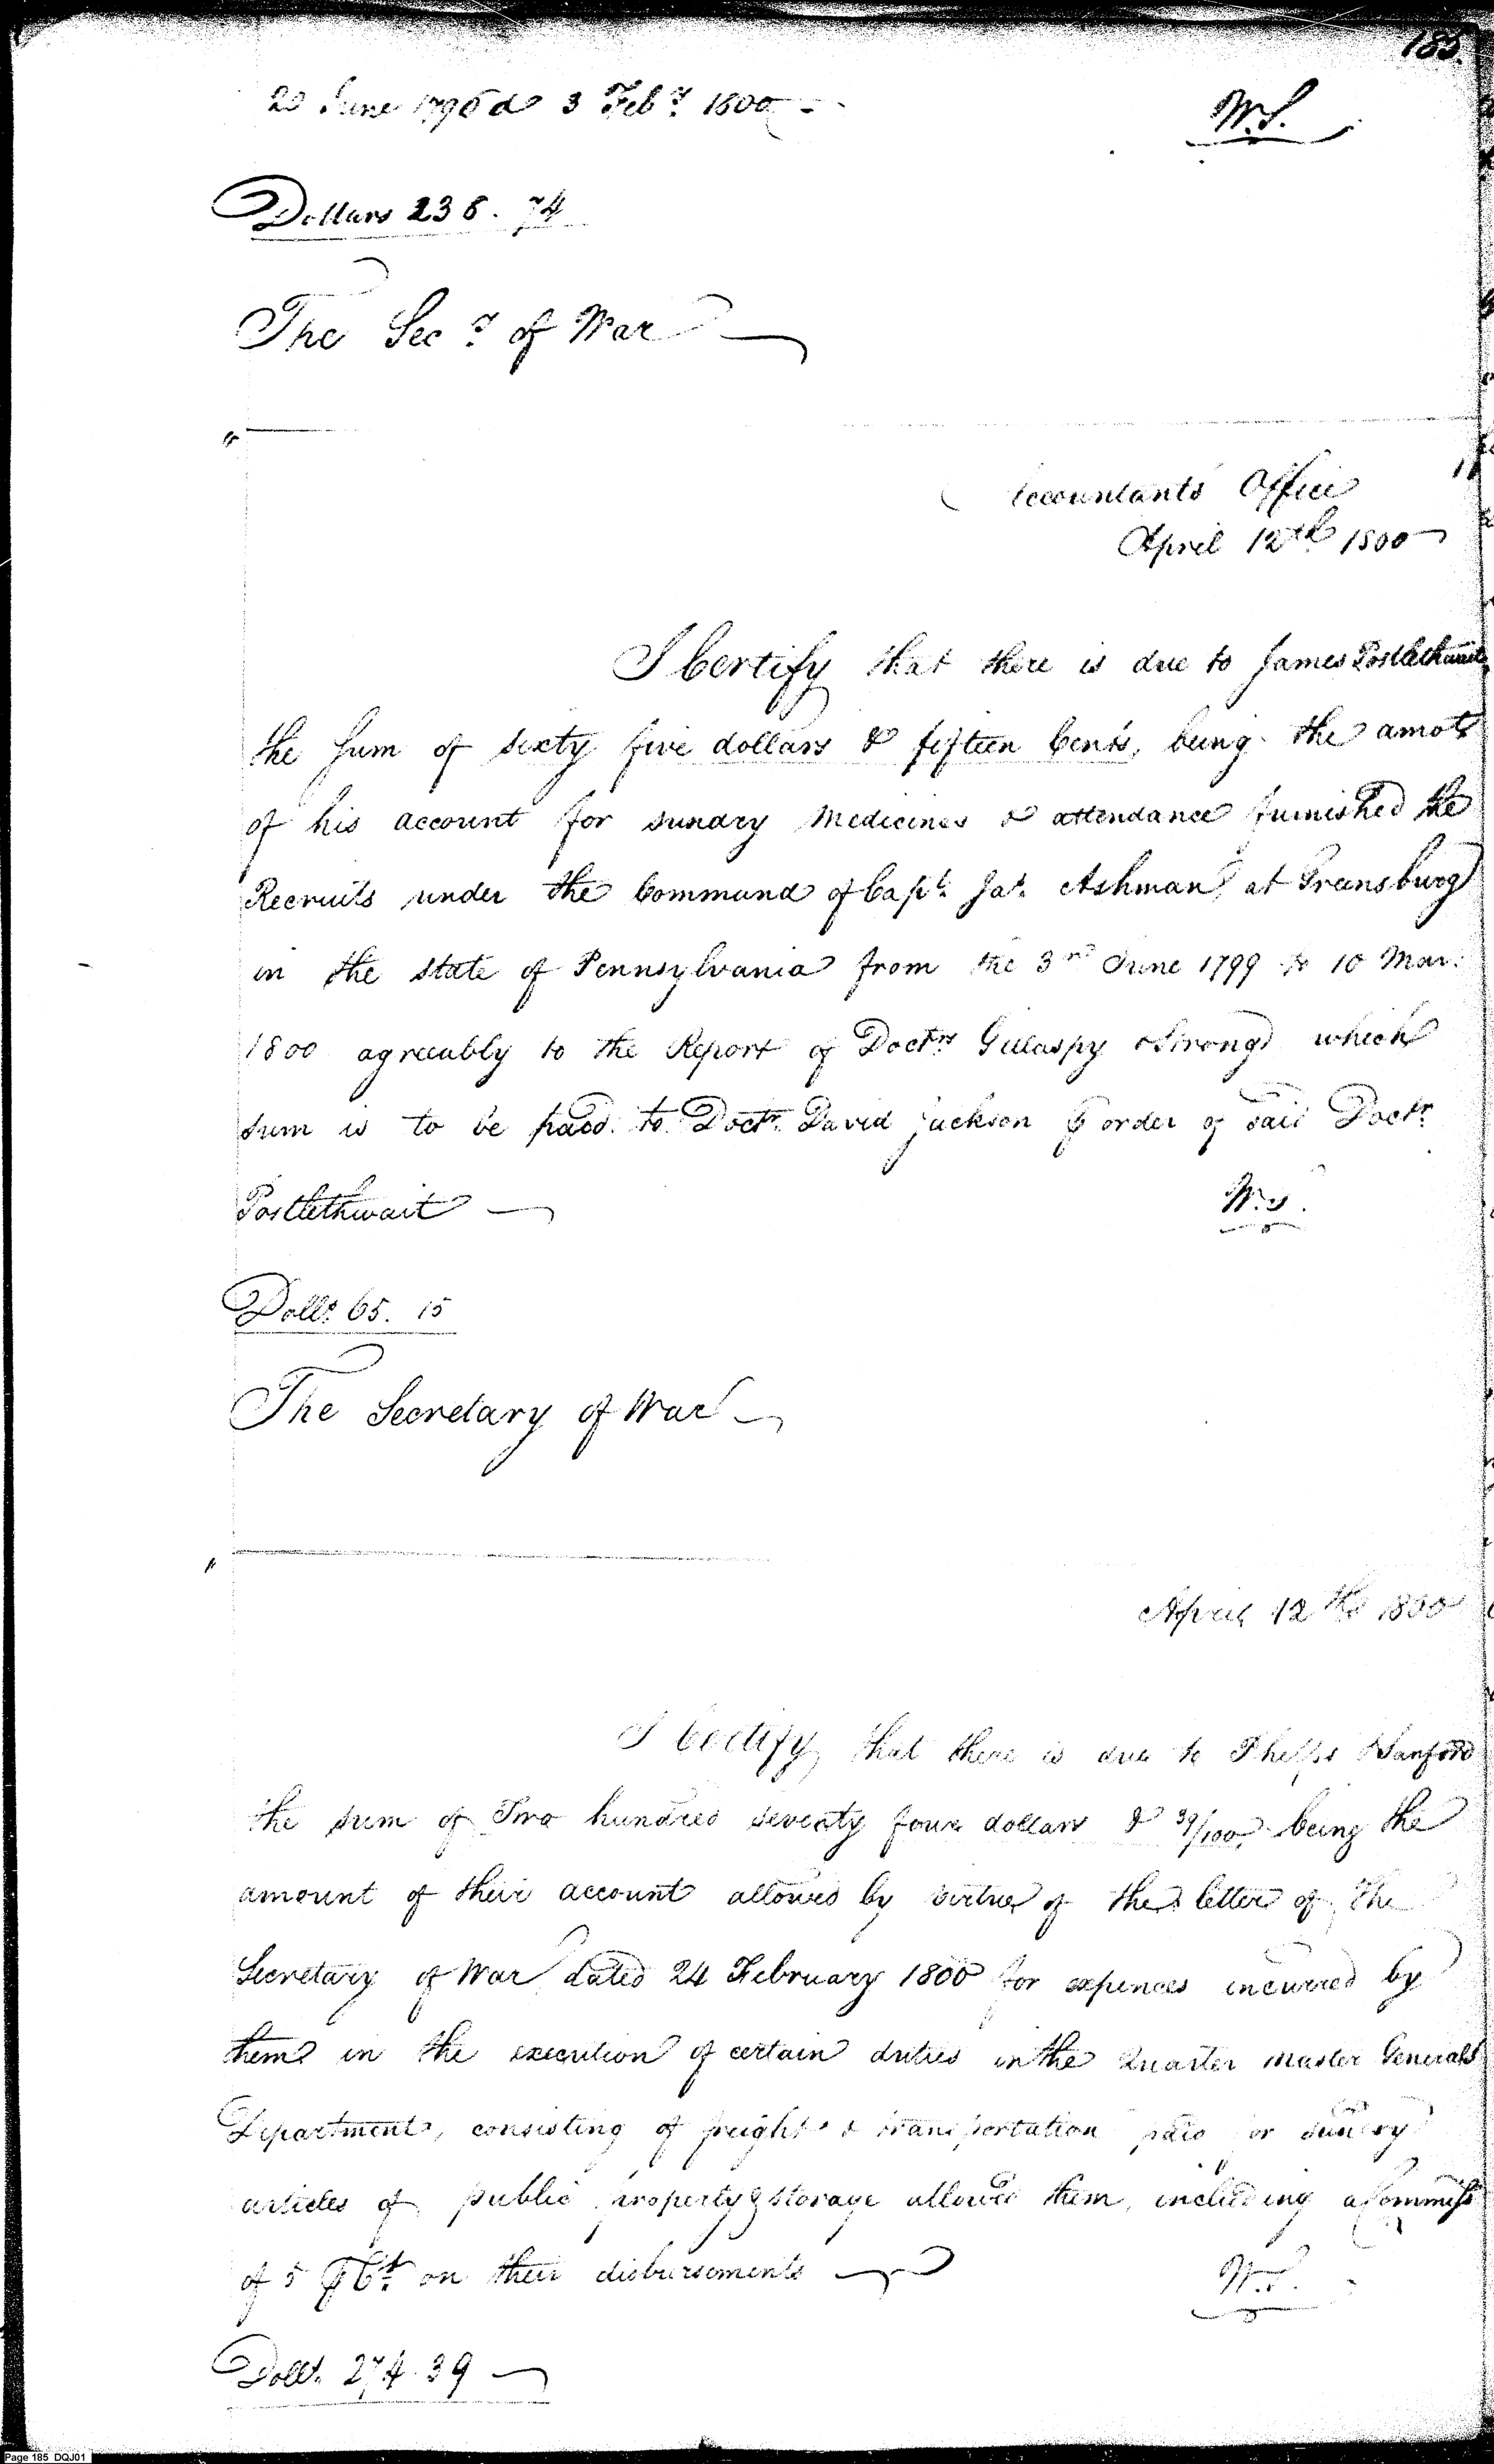 185.
20 June 1796 & 3 Feby. 1800
W.S.
Dollars 238. 74
The Secy. of War
Accountants Office
April 12th 1800
I Certify that there is due to James Postlethwait
the Sum of sixty five dollars & fifteen Cents, being the amot.
of his account for sundry Medicines & attendance furnished the
Recruits under the Command of Capt. Jas. Ashman, at Greensburg
in the state of Pennsylvania from the 3rd June 1799 to 10 Mar:
1800 agreeably to the Report of Doctrs Gillaspy & Strong, which
sum is to be paid to Doctr. David Jackson ⅌ order of said Doctr.
Postlethwait
W.S.
Dolls. 65. 15
The Secretary of War
April 12th 1800
I Certify that there is due to Phelps & Sanford
the sum of Two hundred seventy four dollars & 39/100, being the
amount of their account allowed by virtue of the letter of the
Secretary of War dated 24 February 1800 for expences incurred by
them in the execution of certain duties in the Quarter Master Generals
Department, consisting of freight & transportation paid for sundry
articles of public property & storage allowed them, including a Commiss
of 5 ⅌ Ct. on their disbursements
W.S.
Dolls. 274. 39
Page 185 DQJ01